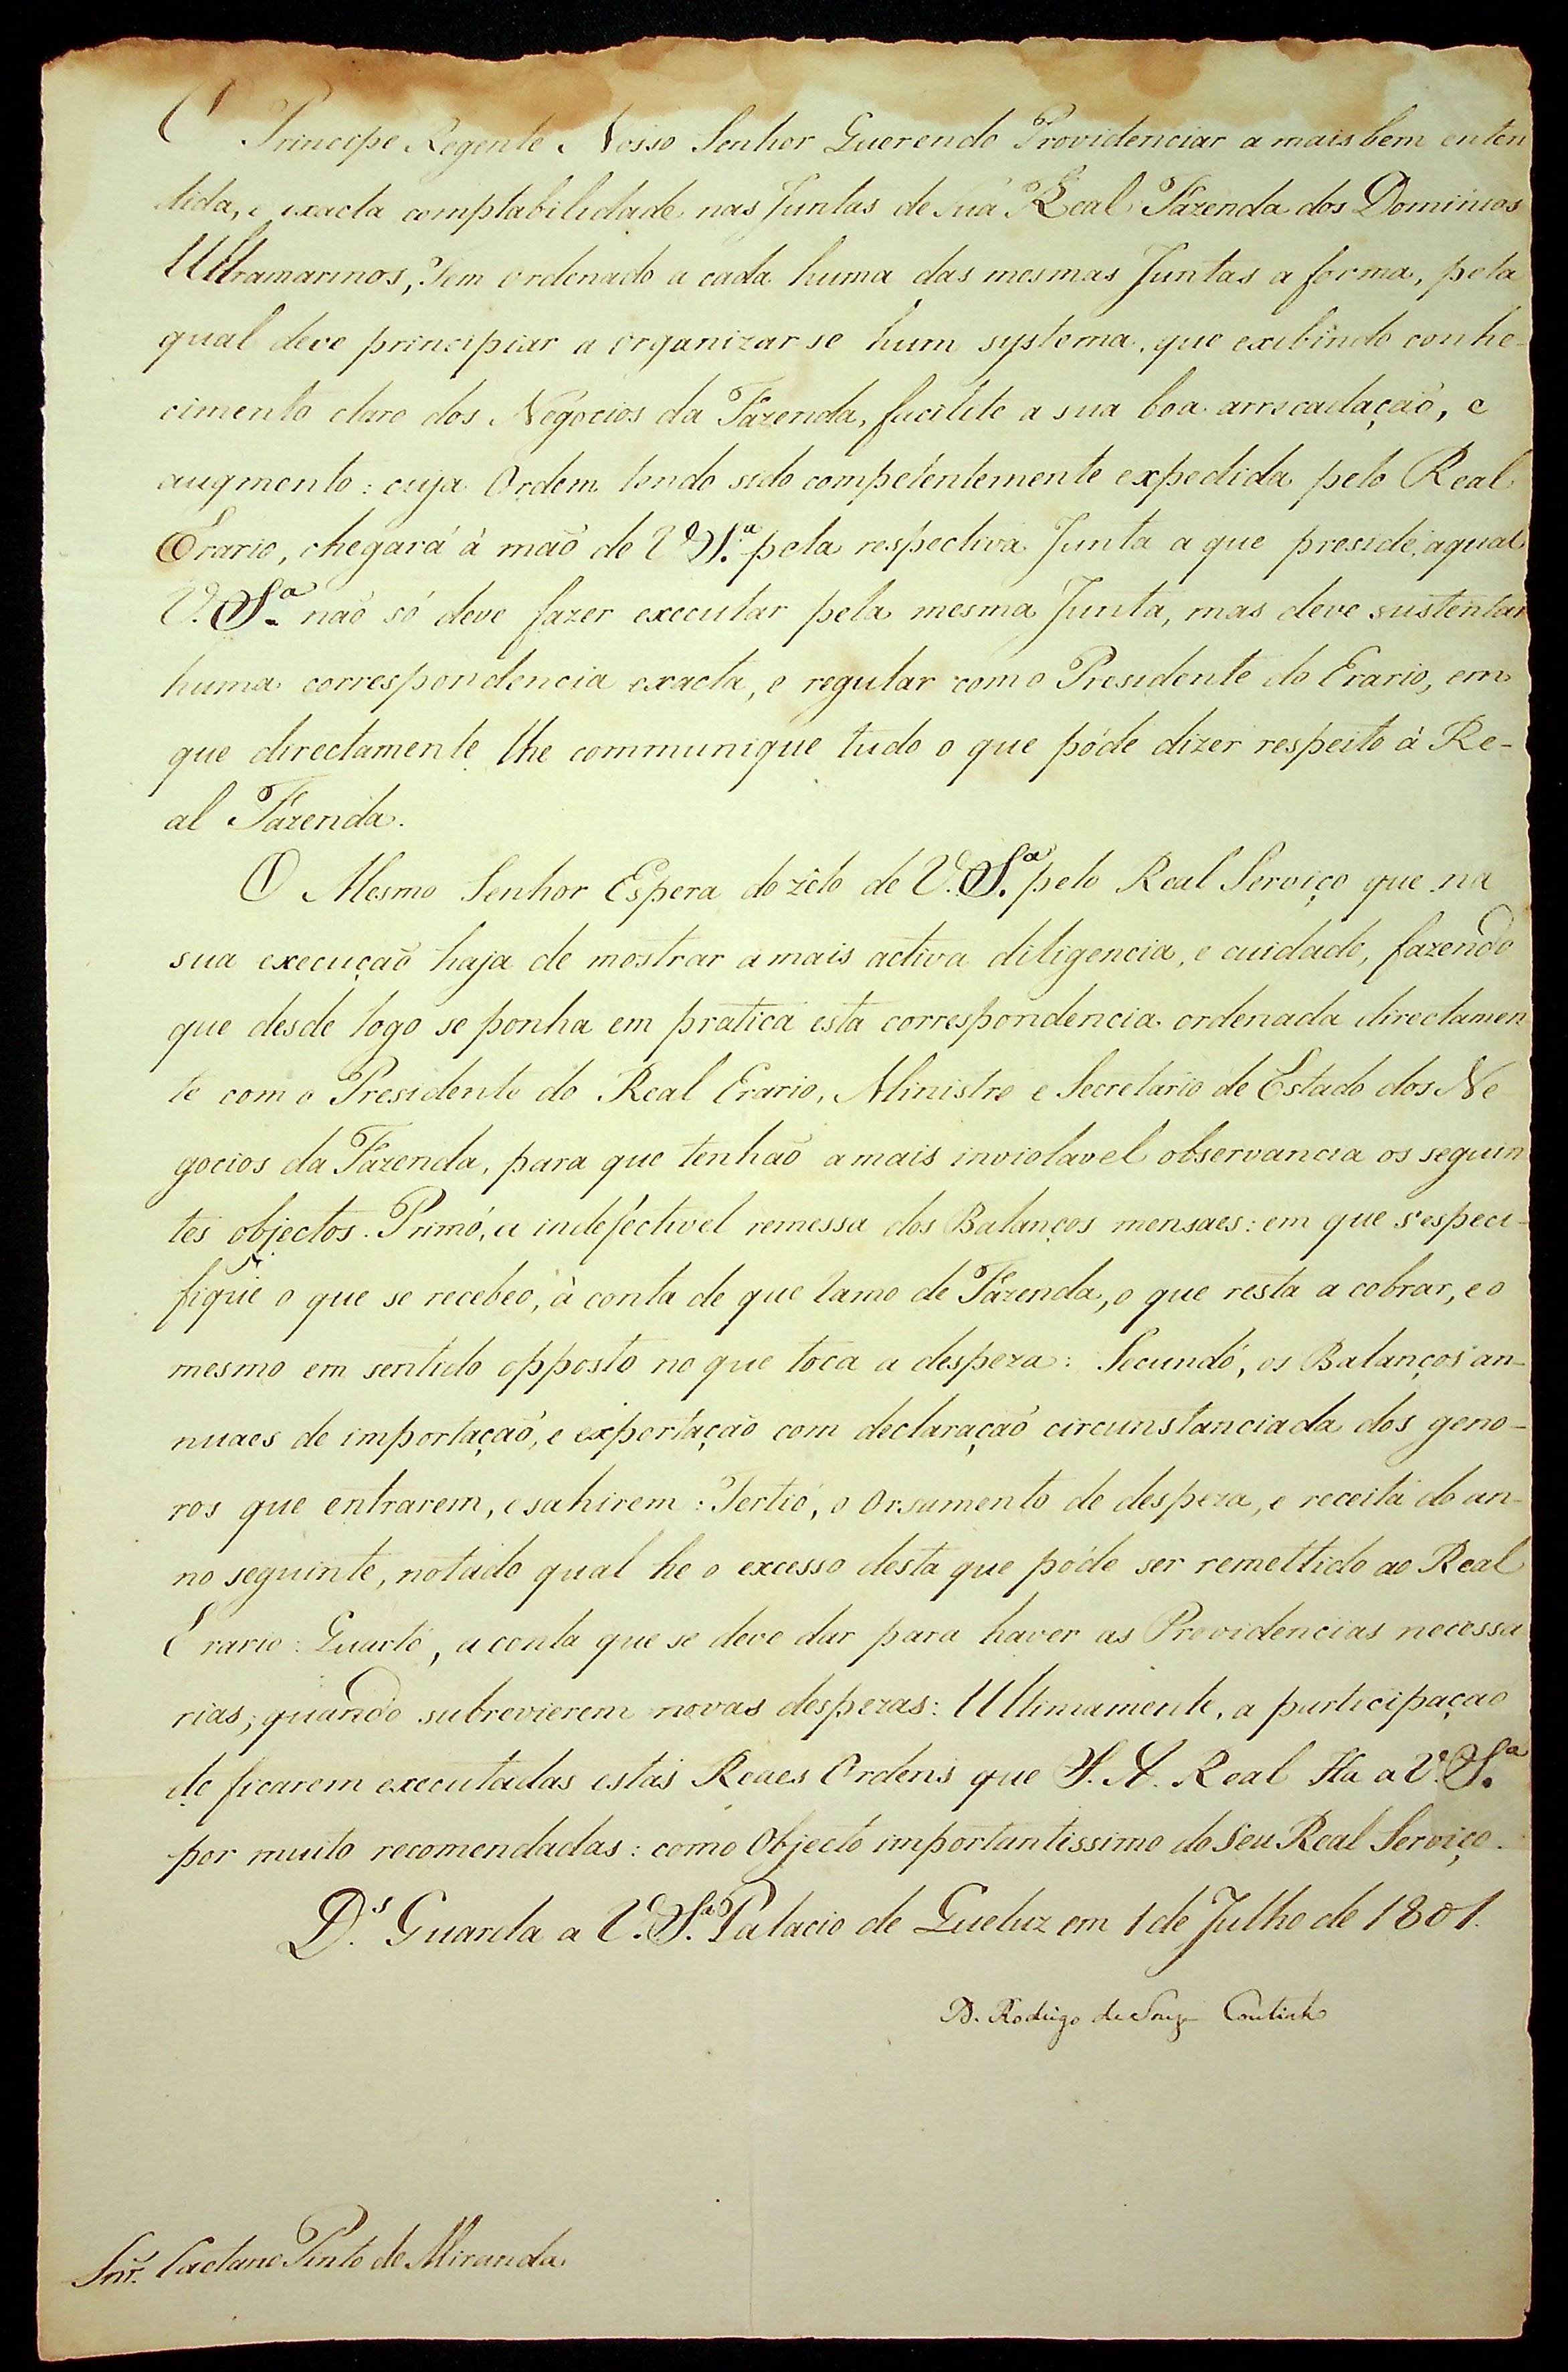 O Principe Regente Nosso Senhor Querendo Providenciar a mais bem enten
dida, e exacta comptabilidade nas Juntas de Sua Real Fazenda dos Dominios
Ultramarinos, Tem ordenado a cada huma das mesmas Juntas a forma, pela
qual deve principiar a organizar se hum systema, que exibindo conhe-
cimento claro dos Negocios da Fazenda, facilite a sua boa arrecadação, e
augmento: cuja Ordem tendo sido competentemente expedida pelo Real
Erario, chegará à mão de V. S.ª pela respectiva Junta a que preside, aqual
V. S.ª não só deve fazer executar pela mesma Junta, mas deve sustentar
huma correspondencia exacta, e regular com o Presidente do Erario, em
que directamente lhe communique tudo o que póde dizer respeito à Re-
al Fazenda.
O Mesmo Senhor Espera do zêlo de V. S.ª pelo Real Serviço que na
sua execução haja de mostrar amais activa diligencia, e cuidado, fazendo
que desde logo se ponha em pratica esta correspondencia ordenada directamen
te com o Presidente do Real Erario, Ministro e Secretario de Estado dos Ne
gocios da Fazenda, para que tenhão amais inviolavel observancia os seguin
tes objectos. Primó, a indefectivel remessa dos Balanços mensaes: em que s'especi-
fique o que se recebeo, à conta de que ramo de Fazenda, o que resta a cobrar, e o
mesmo em sentido opposto no que toca a despeza: Secundó, os Balanços an-
nuaes de importação, e exportação com declaração circunstanciada dos gene-
ros que entrarem, e sahirem: Tertió, o Orsamento de despeza, e receita do an-
no seguinte, notado qual he o excesso desta que póde ser remettido ao Real
Erario: Quartó, a conta que se deve dar para haver as Providencias necessa
rias; quando subrevierem novas despezas: Ultimamente, a participação
de ficarem executadas estas Reaes Ordens que S. A. Real Ha a V. S.ª
por muito recomendadas: como Objecto importantissimo do Seu Real Serviço.
D.s Guarda a V. S.ª Palacio de Queluz em 1 de Julho de 1801.
D. Rodrigo de Souza Coutinho
Snr. Caetano Pinto de Miranda.